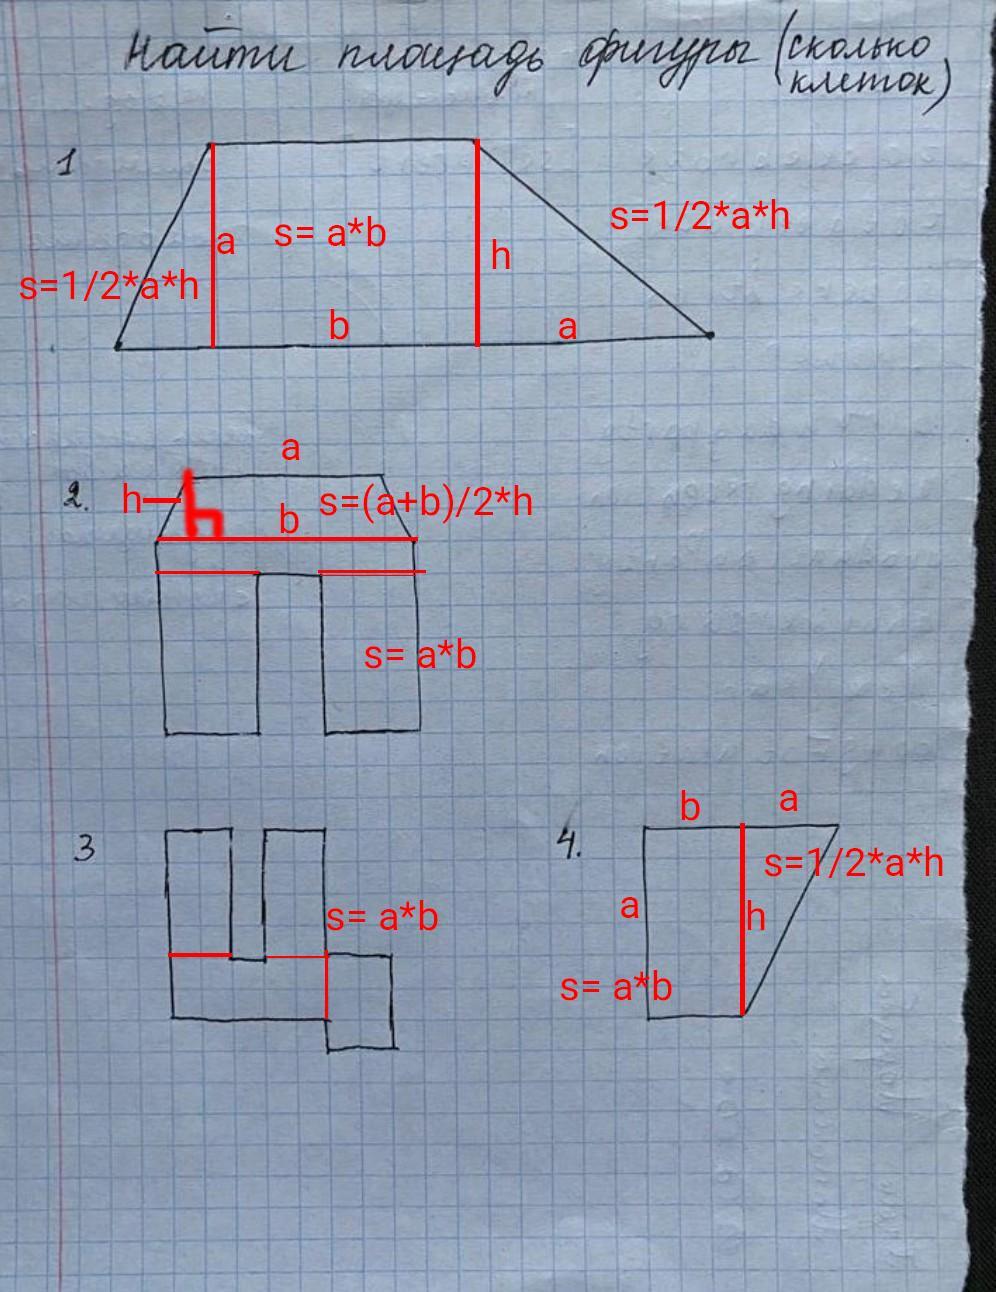 Найти площадь фигуры (сколько
клеток)
1
s= a*b
s=1/2*a*h
a
h
s=1/2*a*h
b
a
a
2.
h
b
s=(a+b)/2*h
s= a*b
3
s= a*b
4.
b
a
s=1/2*a*h
a
h
s= a*b